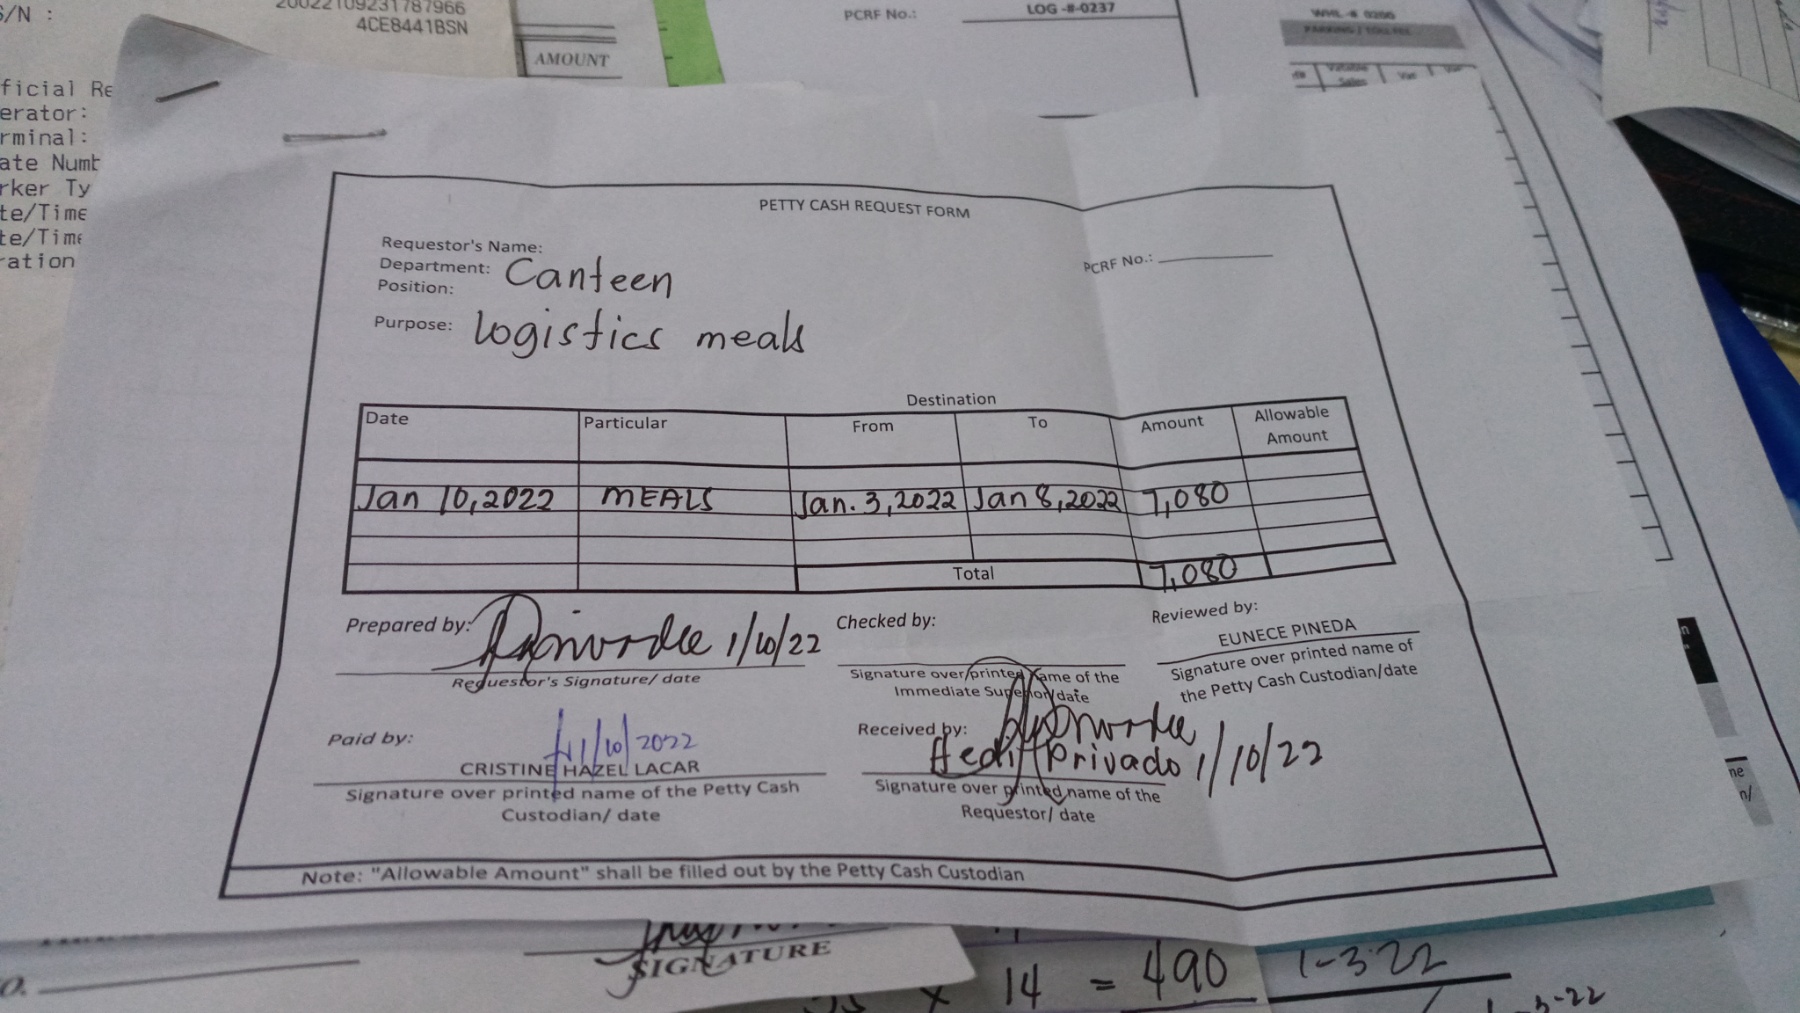 S/N :
20022109231787966
4CE8441BSN
AMOUNT
PCRF No.:
LOG -#-0237
WHL -# 0200
PARKING / TOLL FEE
Vatable
Sales
Vat
ficial Re
erator:
rminal:
ate Numb
rker Ty
te/Time
te/Time
ration
PETTY CASH REQUEST FORM
Requestor's Name:
Department: Canteen
Position:
PCRF No.:
Purpose: logistics meals
Destination
Date Particular From To Amount Allowable Amount
Jan 10, 2022 MEALS Jan. 3, 2022 Jan 8, 2022 7,080
Total 7,080
Prepared by: 1/10/22
Requestor's Signature/ date
Checked by:
Signature over printed name of the
Immediate Superior/date
Reviewed by:
EUNECE PINEDA
Signature over printed name of
the Petty Cash Custodian/date
Paid by: 1/10/2022
CRISTINE HAZEL LACAR
Signature over printed name of the Petty Cash
Custodian/ date
Received by:
Privado 1/10/22
Signature over printed name of the
Requestor/ date
Note: "Allowable Amount" shall be filled out by the Petty Cash Custodian
SIGNATURE
x 14 = 490
1-3-22